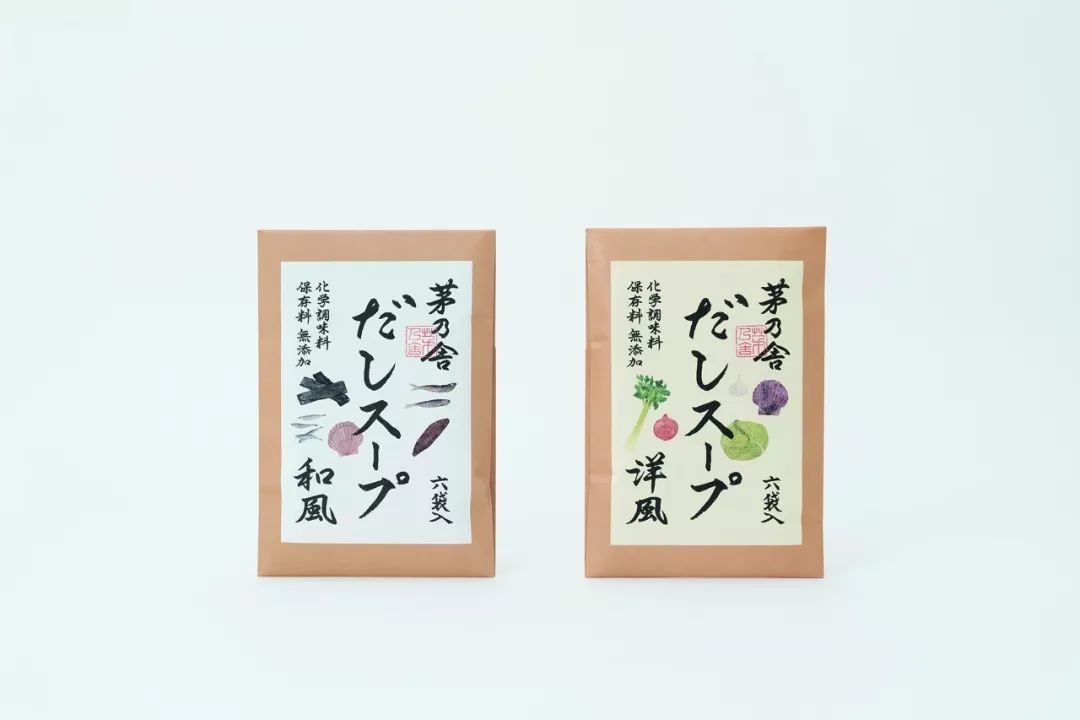 茅乃舎
茅乃舎
だしスープ
化学調味料
保存料 無添加
和風
六袋入
茅乃舎
茅乃舎
だしスープ
化学調味料
保存料 無添加
洋風
六袋入